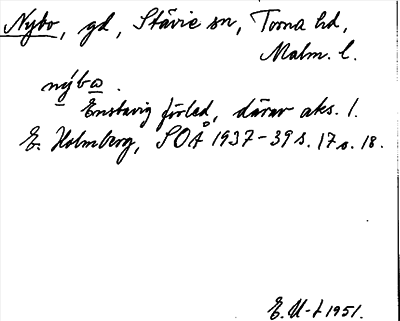 Nybo, gd, Stävie sn, Torna hd,
Malm. l.
nýbo.
Enstavig förled, därav aks. 1.
E. Holmberg, SOÅ 1937-39 s. 17 o. 18.
E. U-t 1951.